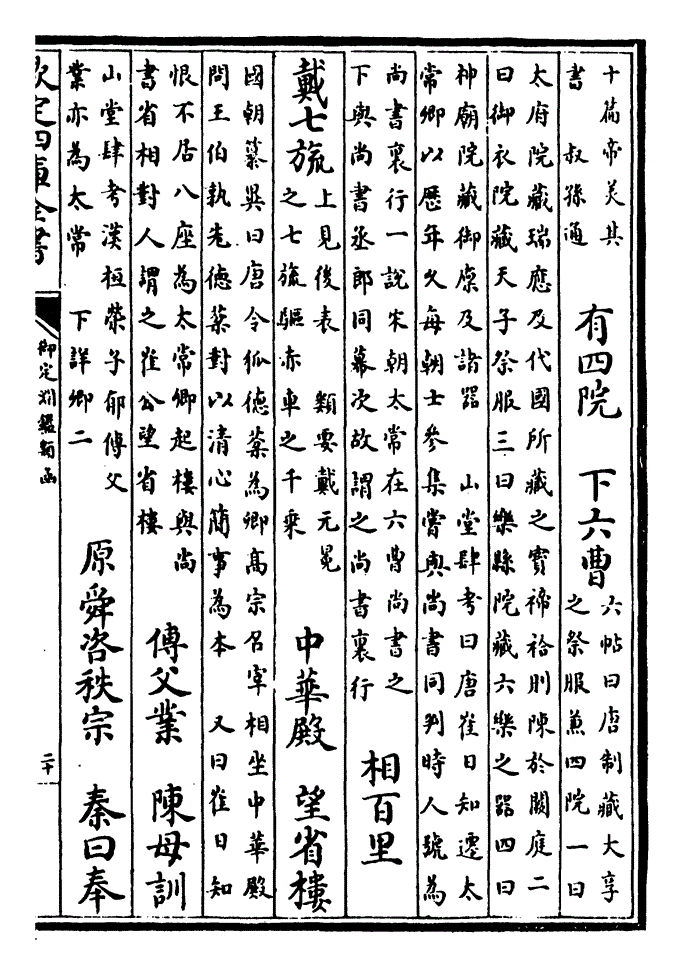 十篇帝美其
書 叔孫通
有四院 下六曹
六帖曰唐制藏大享
之祭服兼四院一曰
太府院藏瑞應及代國所藏之寳禘祫則陳於闕庭二
曰御衣院藏天子祭服三曰樂縣院藏六樂之器四曰
神廟院藏御廪及諸器 山堂肆考曰唐崔日知遷太
常卿以歴年久每朝士參集嘗與尚書同列時人號為
尚書裏行一說宋朝太常在六曹尚書之
下與尚書丞郎同幕次故謂之尚書裏行
相百里
戴七旒
上見後表 類要戴元冕
之七旒驅赤車之千乘
中華殿 望省樓
國朝纂異曰唐令狐德棻為卿髙宗召宰相坐中華殿
問王伯執先德棻對以清心簡事為本 又曰崔日知
恨不居八座為太常卿起樓與尚
書省相對人謂之崔公望省樓
傳父業 陳母訓
山堂肆考漢桓榮子郁傳父
業亦為太常 下詳卿二
原舜咨秩宗 秦曰奉
欽定四庫全書
御定淵鑑類函
二十